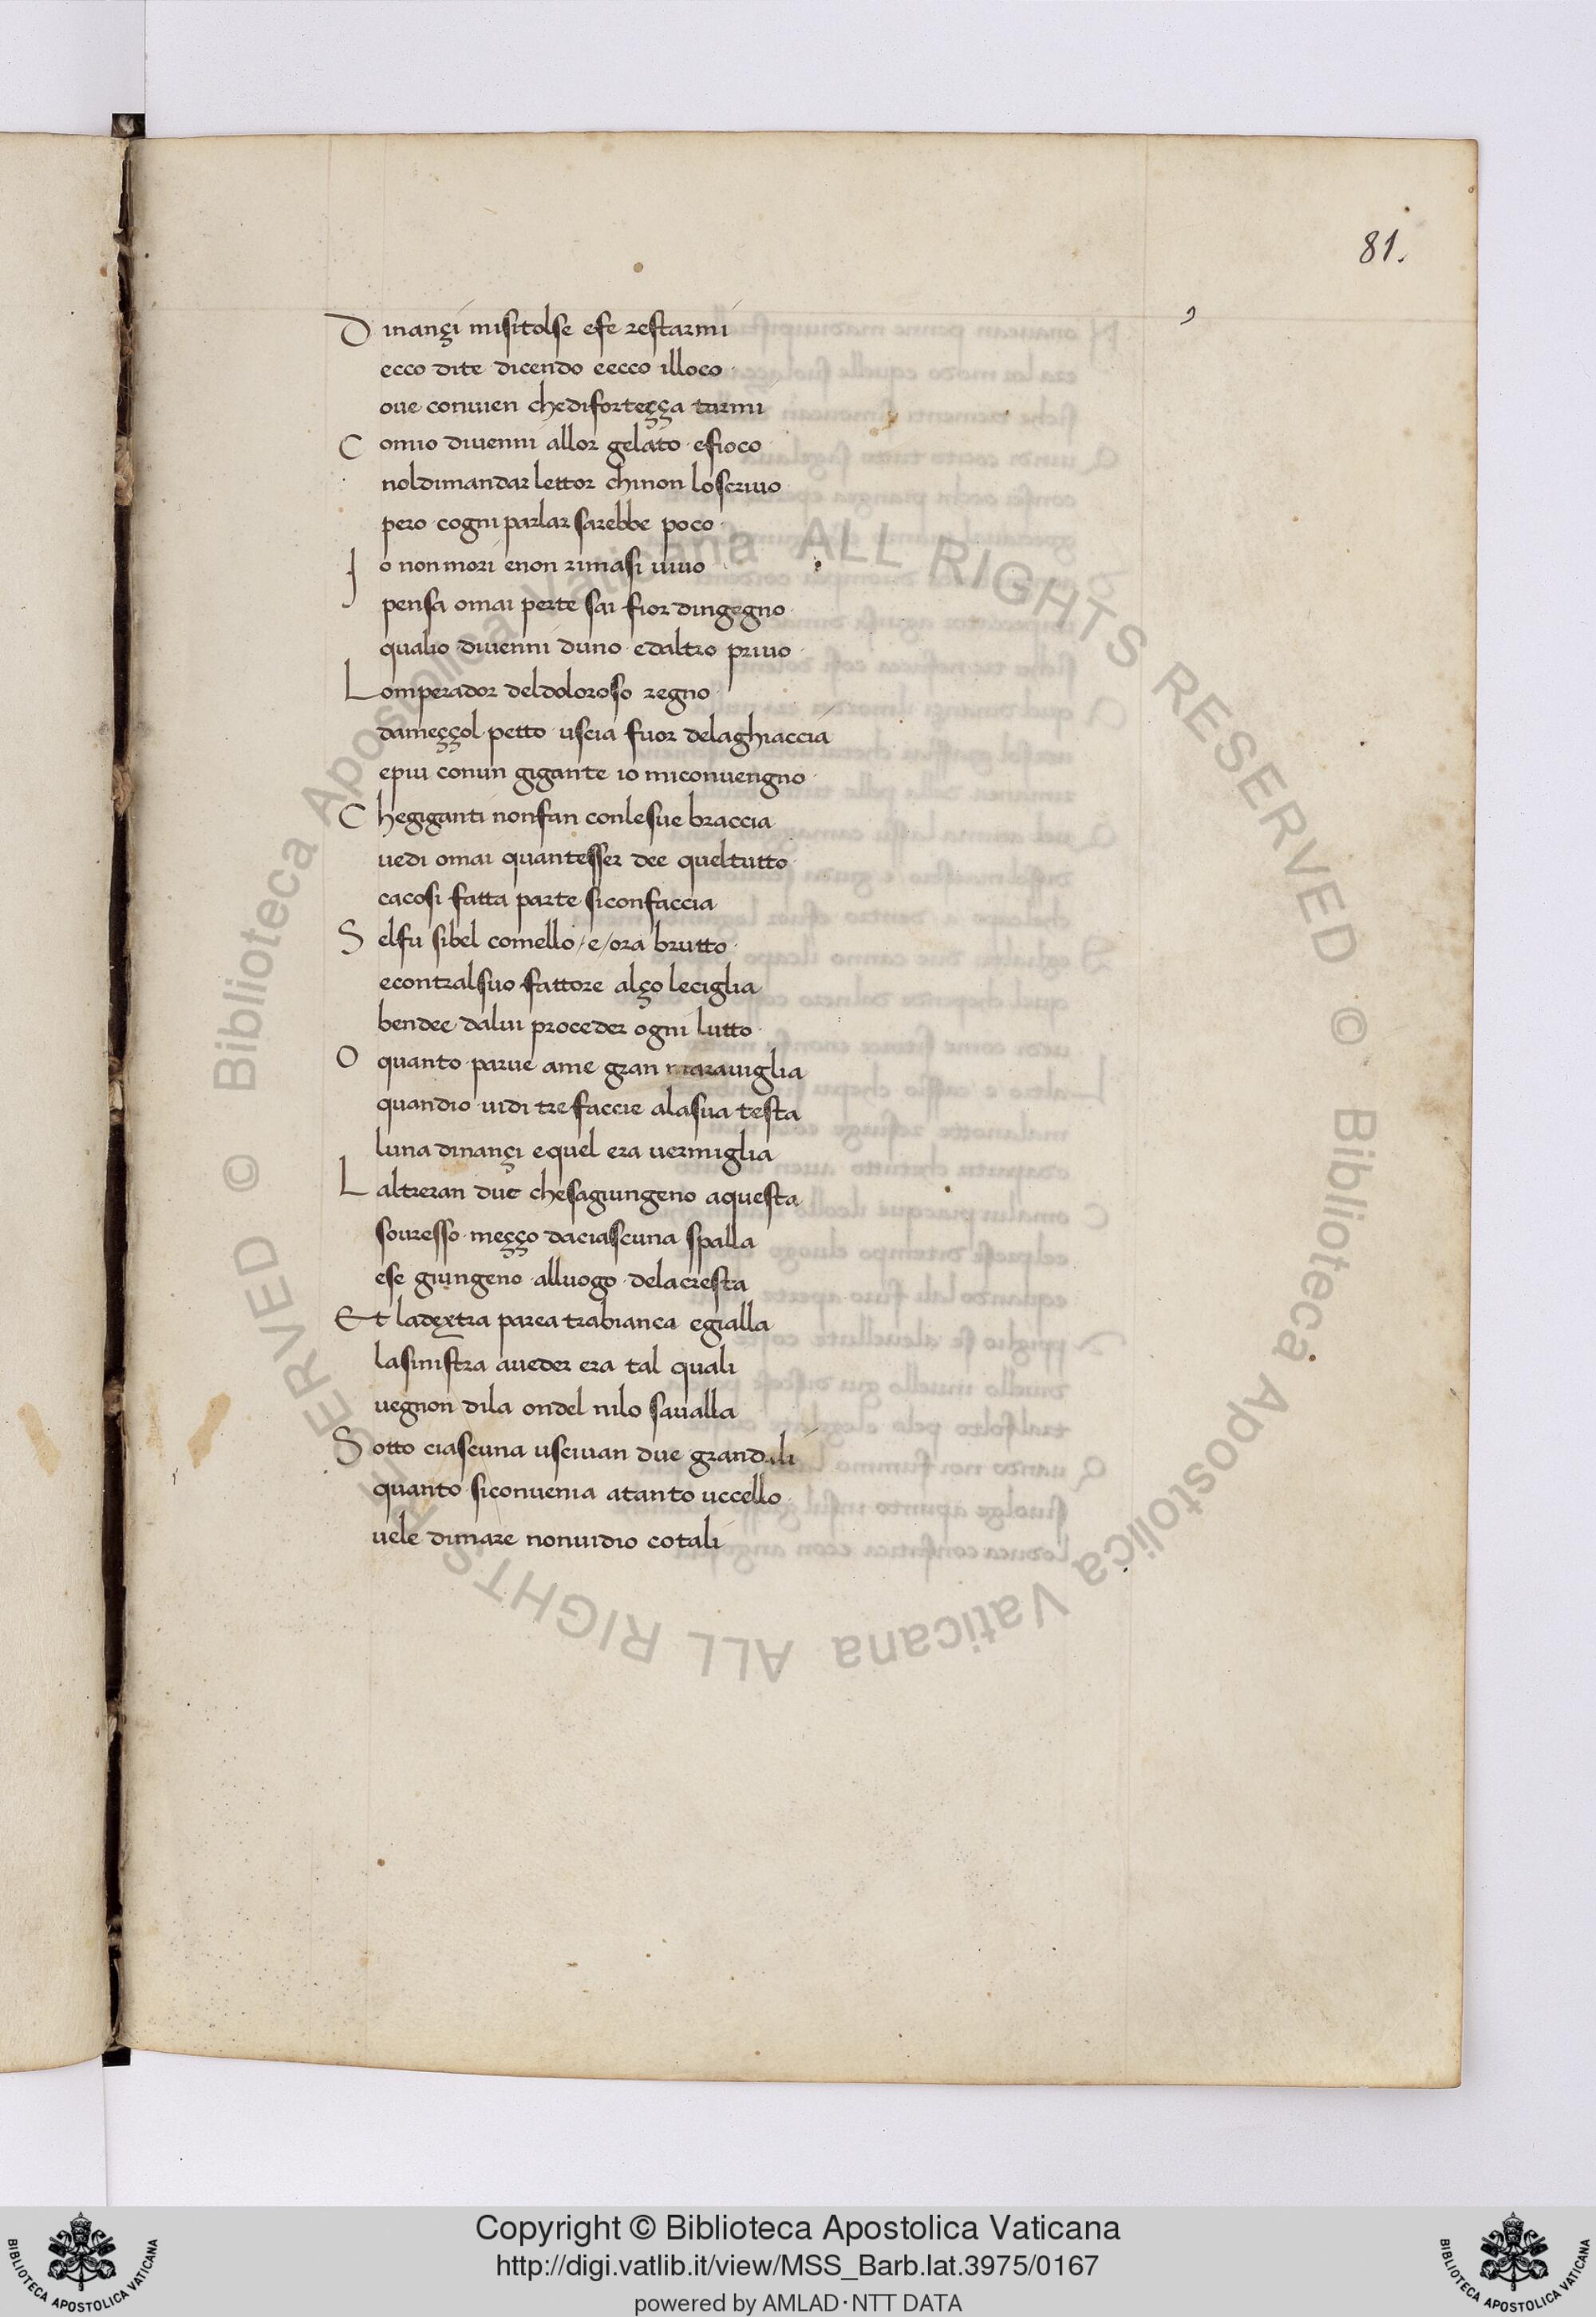 81.
Dinançi misitolse efe restarmi
ecco dite dicendo eecco illoco
oue conuien chedifforteçça tarmi
Comio diuenni allor gelato efioco
noldimandar lettor chinon loscriuo
pero cogni parlar sarebbe poco
Io nonmori enon rimasi uiuo
pensa omai perte sai fior dingegno
qualio diuenni duno edaltro priuo
Lomperador deldoloroso regno
dameççol petto uscia fuor delaghiaccia
epiu conun gigante io miconuengno
Chegiganti nonfan conlesue braccia
uedi omai quantesser dee queltutto
cacosi fatta parte siconfaccia
Selfu sibel comello/e/ora brutto
econtralsuo fattore alço leciglia
bendee dalui proceder ogni lutto
O quanto parue ame gran marauiglia
quandio uidi tre faccie alasua testa
luna dinançi equel era uermiglia
Laltreran due chesagiungeno aquesta
souresso meçço daciascuna spalla
ese giungeno alluogo delacresta
Et ladextra parea trabianca egialla
lasinistra aueder era tal quali
uegnon dila ondel nilo saualla
Sotto ciascuna usciuan due grandali
quanto siconuenia atanto uccello
uele dimare nonuidio cotali
© Biblioteca Apostolica Vaticana ALL RIGHTS RESERVED
© Biblioteca Apostolica Vaticana ALL RIGHTS RESERVED
Copyright © Biblioteca Apostolica Vaticana
http://digi.vatlib.it/view/MSS_Barb.lat.3975/0167
powered by AMLAD·NTT DATA
BIBLIOTECA APOSTOLICA VATICANA
BIBLIOTECA APOSTOLICA VATICANA